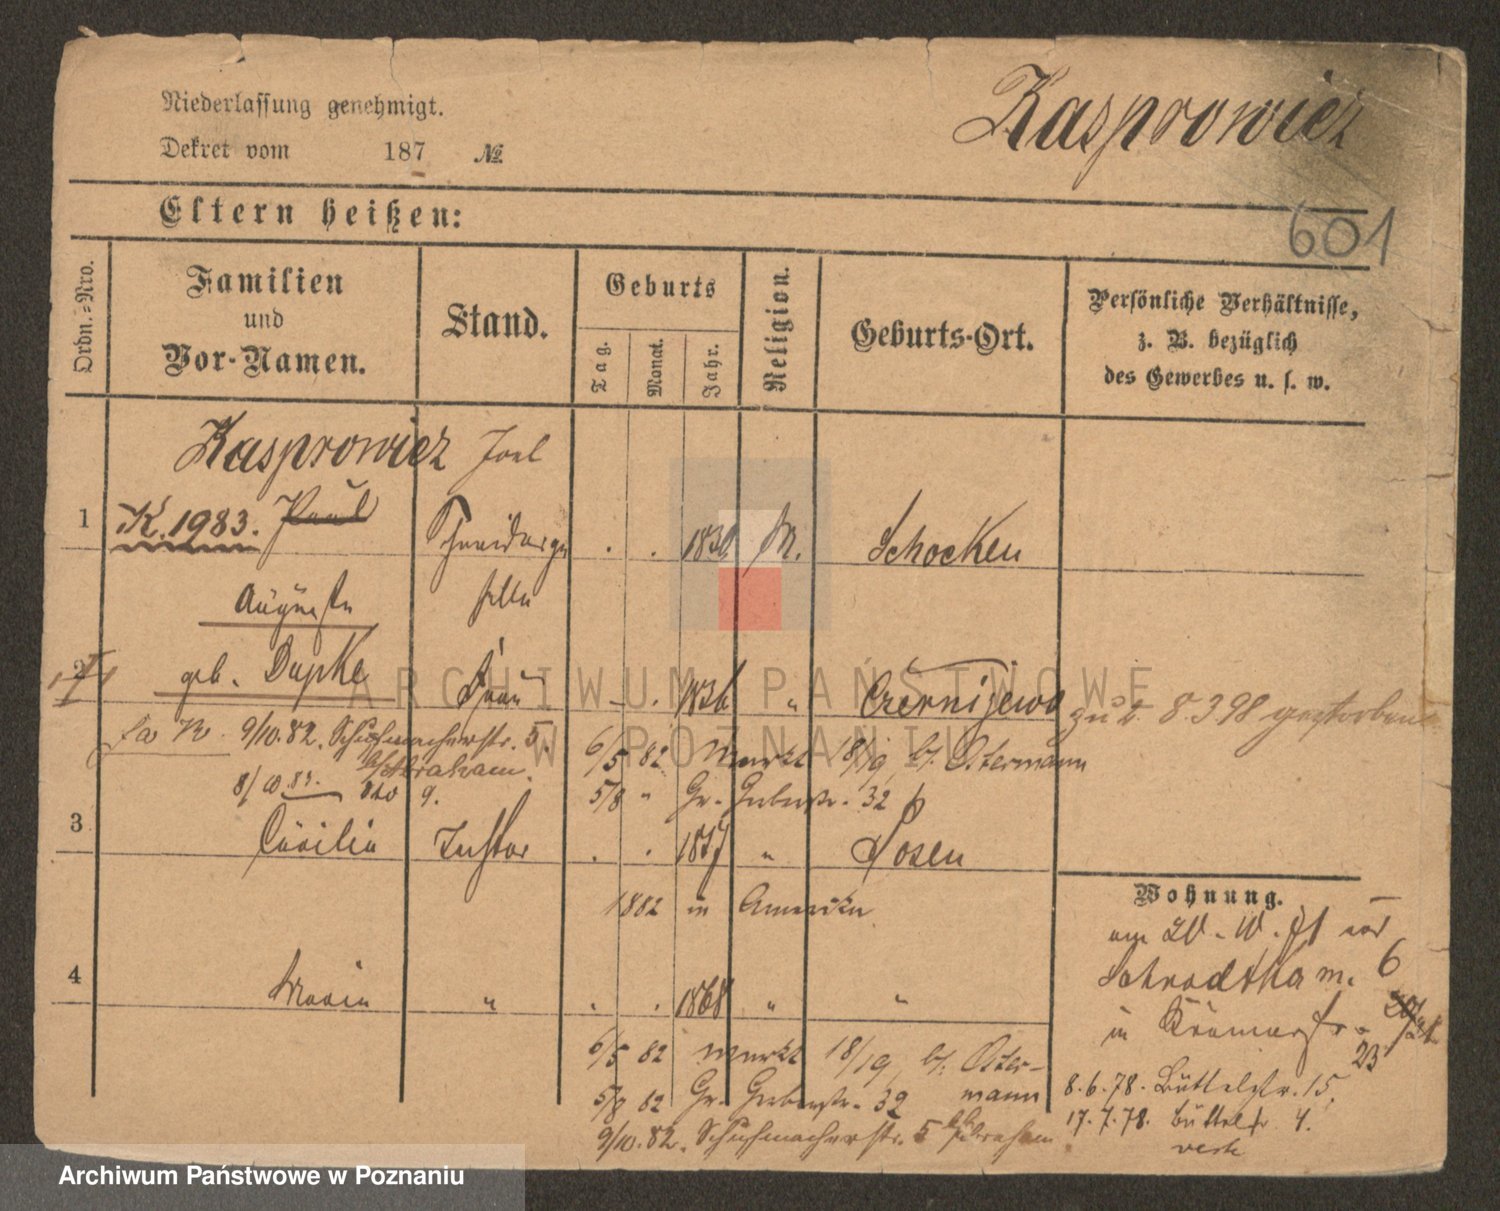 Niederlassung genehmigt.
Kasprowicz
Dekret vom 187 №
Eltern heißen:
601
Ordn.-Nro.
Familien
und
Vor-Namen.
Stand.
Geburts
Tag.
Monat.
Jahr.
Religion.
Geburts-Ort.
Persönliche Verhältnisse,
z. B. bezüglich
des Gewerbes u. s. w.
Kasprowicz Joel
1 K. 1983. Paul Schneiderge 1830 M. Schocken
Auguste selle
2 geb. Dupke Frau - . 1836 " Czernijewo
zu 2. 8.3.98 gestorben
9/10.82. Schuhmacherstr. 5.
b/Abraham.
6/5 82 Markt 18/19, b. Ostermann
8/10.83. 9.
5/8 " Gr. Gerberstr. 32
3 Cäcilie Tochter . . 1857 " Posen
1882 in Amerika
Wohnung.
4 Marie " " . 1868 " "
Schrodtkam. 6
in Krämerstr.
23
6/5 82 Markt 18/19, b. Oster-
mann
5/8 82 Gr. Gerberstr. 32
9/10.82. Schuhmacherstr. 5 bb Abraham
8.6.78. Büttelstr. 15,
17.7.78. Büttelstr 4.
ARCHIWUM PAŃSTWOWE
W POZNANIU
Archiwum Państwowe w Poznaniu